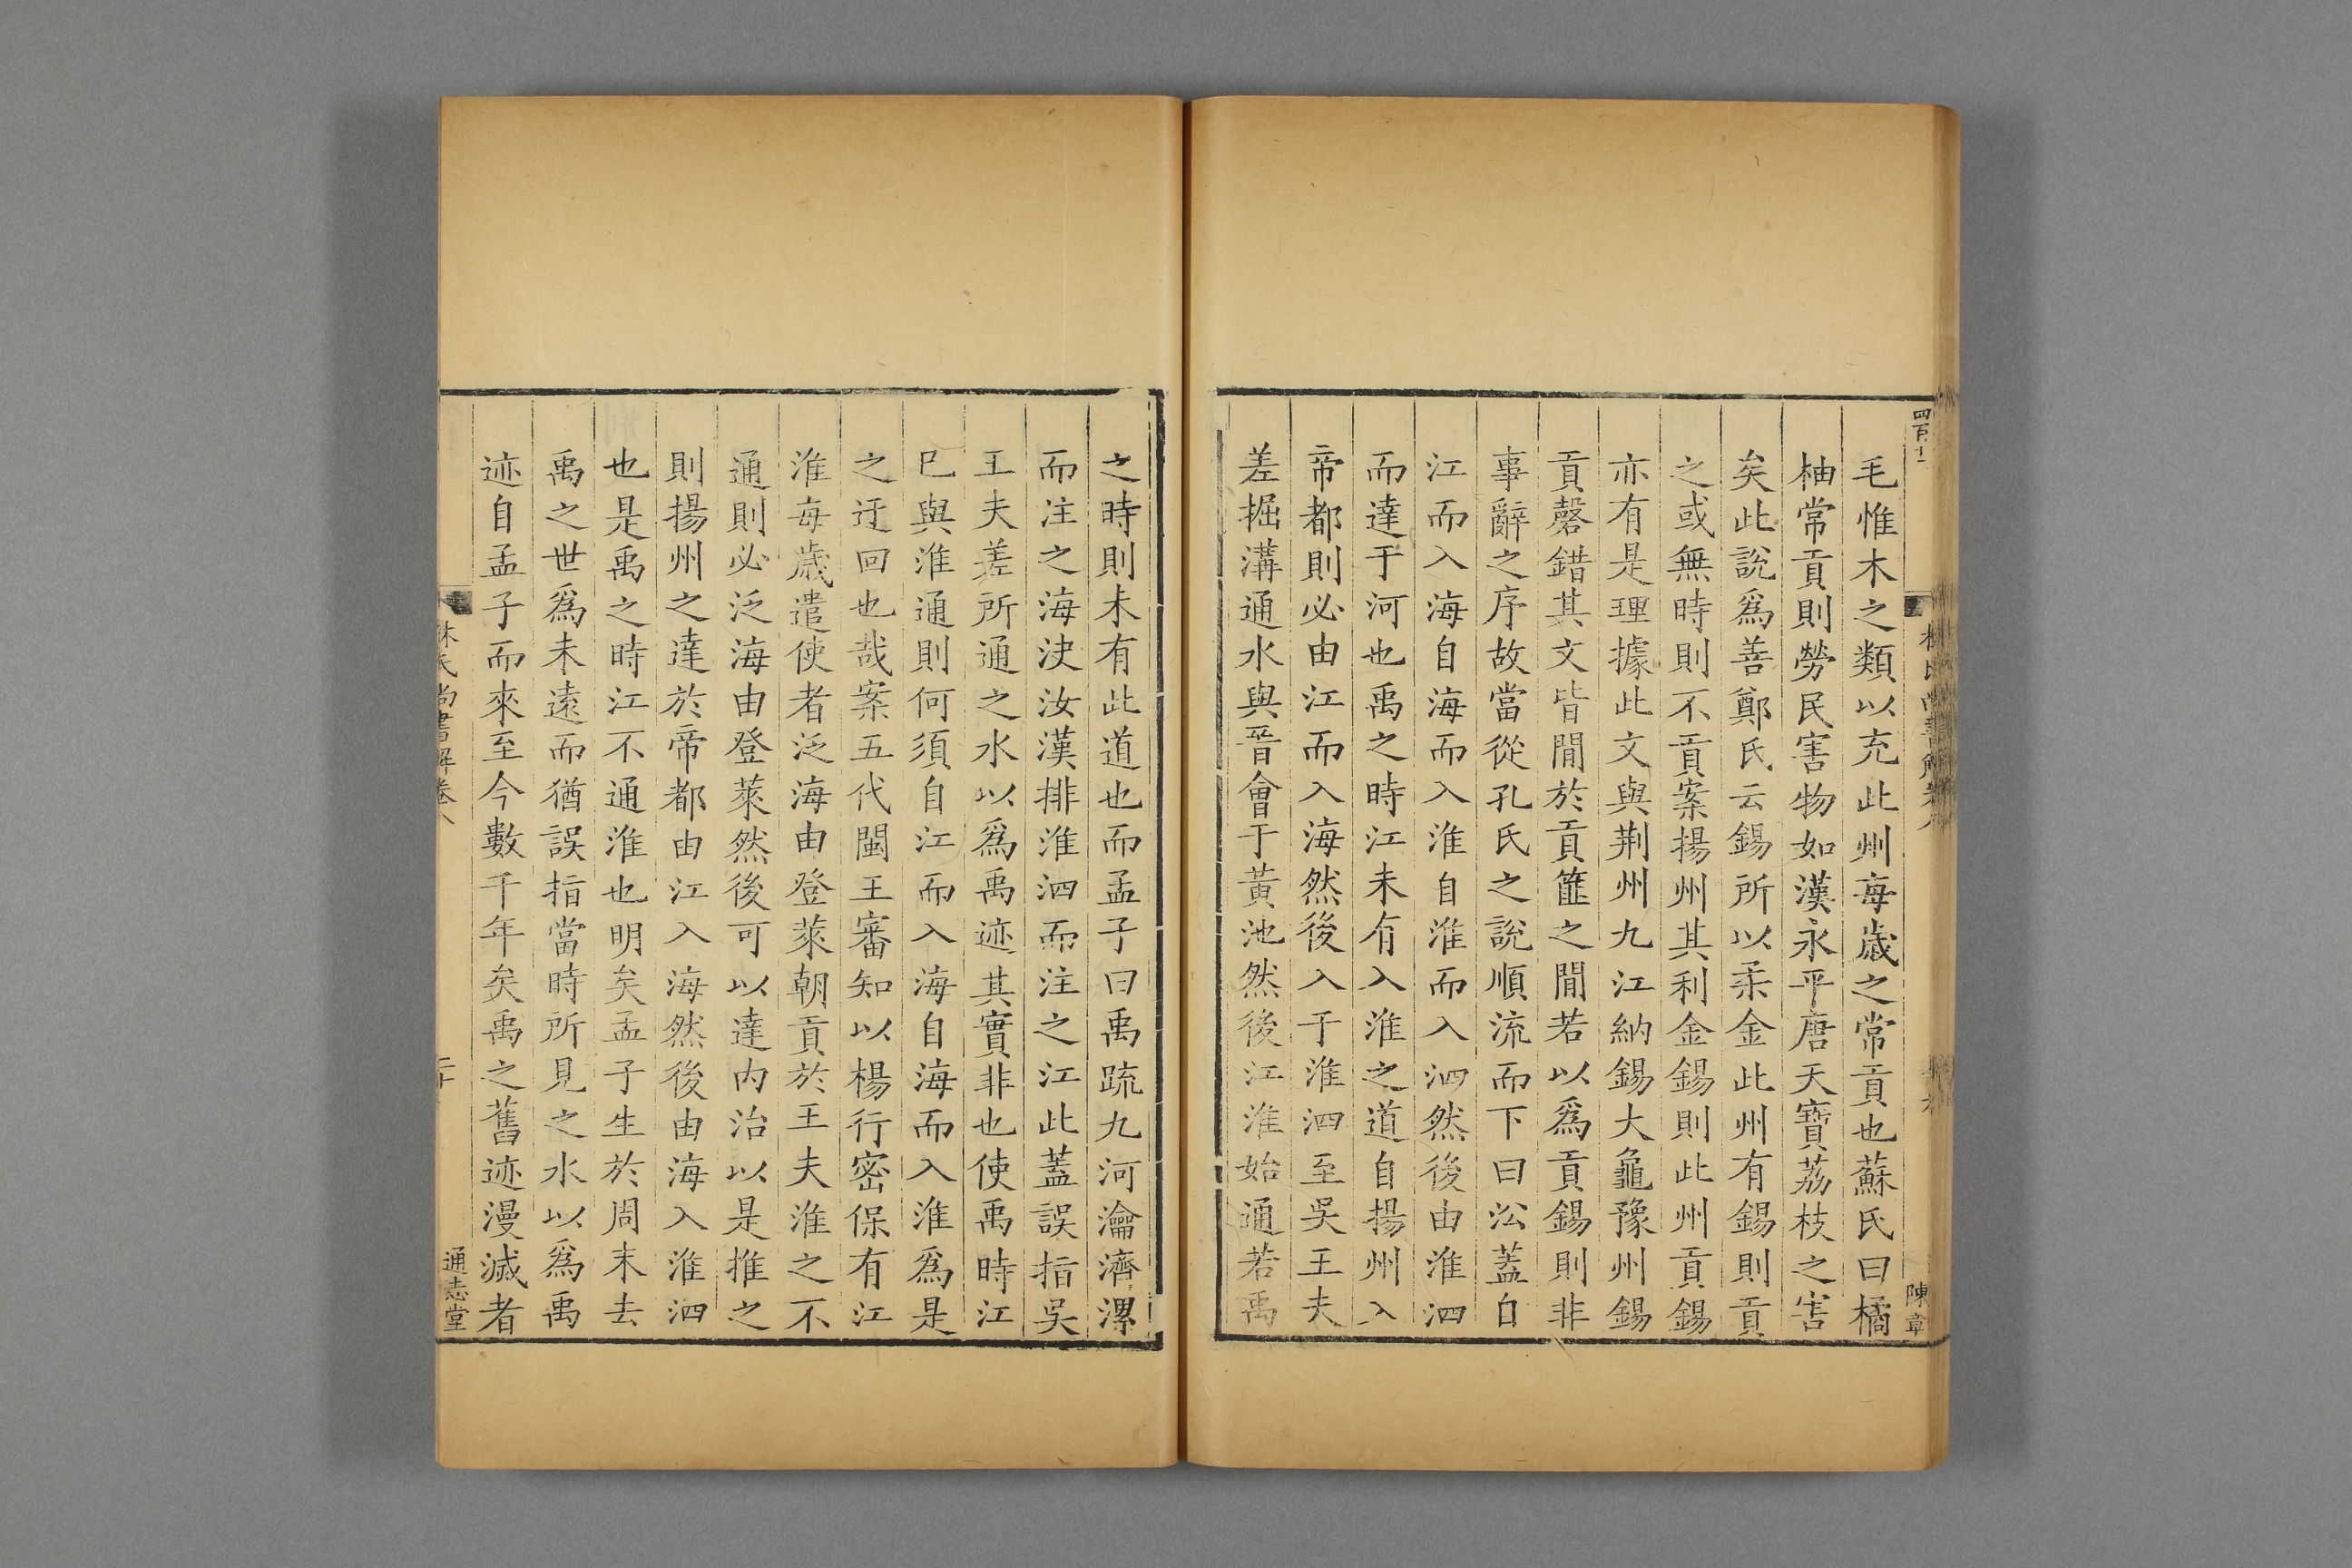 四百十二
毛惟木之類以充此州每歲之常貢也蘇氏曰橘
柚常貢則勞民害物如漢永平唐天寶荔枝之害
矣此說爲善鄭氏云錫所以柔金此州有錫則貢
之或無時則不貢案揚州其利金錫則此州貢錫
亦有是理據此文與荆州九江納錫大龜豫州錫
貢磬錯其文皆閒於貢篚之閒若以爲貢錫則非
事辭之序故當從孔氏之說順流而下曰㳂蓋自
江而入海自海而入淮自淮而入泗然後由淮泗
而達于河也禹之時江未有入淮之道自揚州入
帝都則必由江而入海然後入于淮泗至吳王夫
差掘溝通水與晉會于黃池然後江淮始通若禹
陳章
之時則未有此道也而孟子曰禹疏九河瀹濟漯
而注之海決汝漢排淮泗而注之江此蓋誤指吳
王夫差所通之水以爲禹迹其實非也使禹時江
巳與淮通則何須自江而入海自海而入淮爲是
之迂回也哉案五代閩王審知以楊行密保有江
淮每歲遣使者泛海由登萊朝貢於王夫淮之不
通則必泛海由登萊然後可以達内治以是推之
則揚州之達於帝都由江入海然後由海入淮泗
也是禹之時江不通淮也明矣孟子生於周末去
禹之世爲未遠而猶誤指當時所見之水以爲禹
迹自孟子而來至今數千年矣禹之舊迹漫滅者
林氏尚書解卷八
通志堂